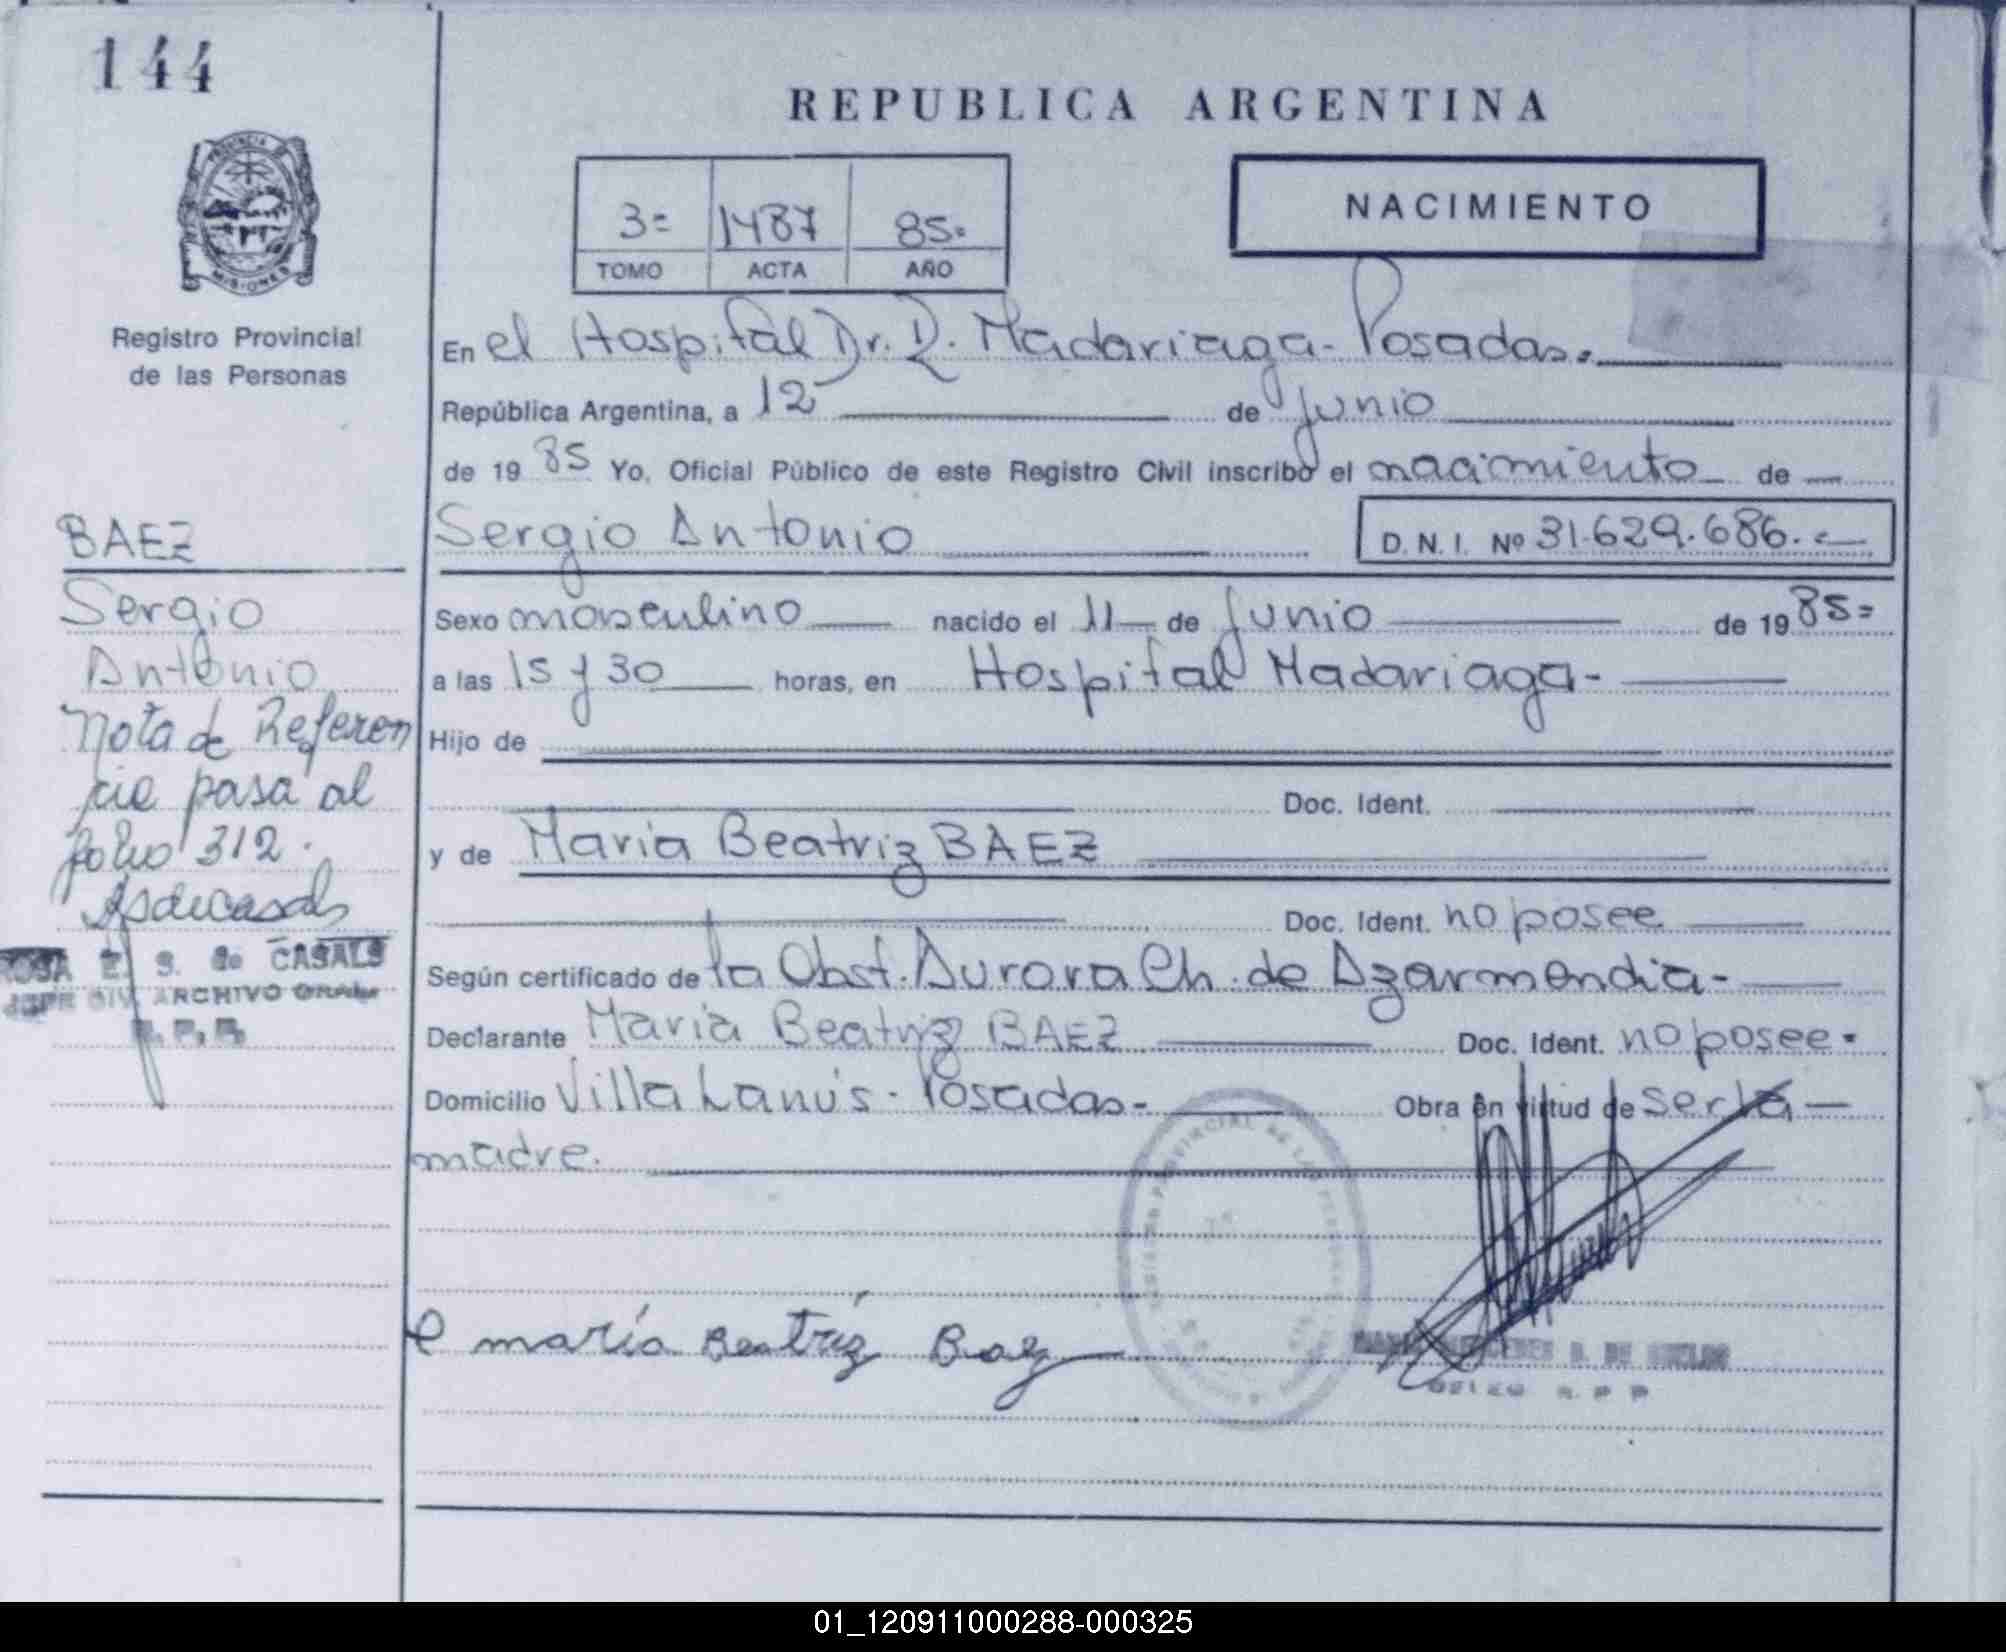 144
REPUBLICA ARGENTINA
PROVINCIA DE MISIONES
3= 1487 85=
TOMO ACTA AÑO
NACIMIENTO
Registro Provincial
de las Personas
En el Hospital Dr. R. Madariaga - Posadas.
República Argentina, a 12 de Junio
de 19 85 Yo, Oficial Público de este Registro Civil inscribo el nacimiento de
Sergio Antonio D.N.I. Nº 31.629.686.-
Sexo masculino nacido el 11 de Junio de 19 85=
a las 15 y 30 horas, en Hospital Madariaga-
Hijo de
Doc. Ident.
y de Maria Beatriz BAEZ
Doc. Ident. no posee
Según certificado de la Obst. Aurora Ch. de Azarmendia-
Declarante Maria Beatriz BAEZ Doc. Ident. no posee.
Domicilio Villa Lanús - Posadas- Obra en virtud de ser la
madre.
maría Beatríz Baez
BAEZ
Sergio
Antonio
Nota de Referen
cie pasa al
folio 312.
ROSA E. S. de CASALS
JEFE DIV. ARCHIVO GRAL
R.P.P.
R P P
01_120911000288-000325